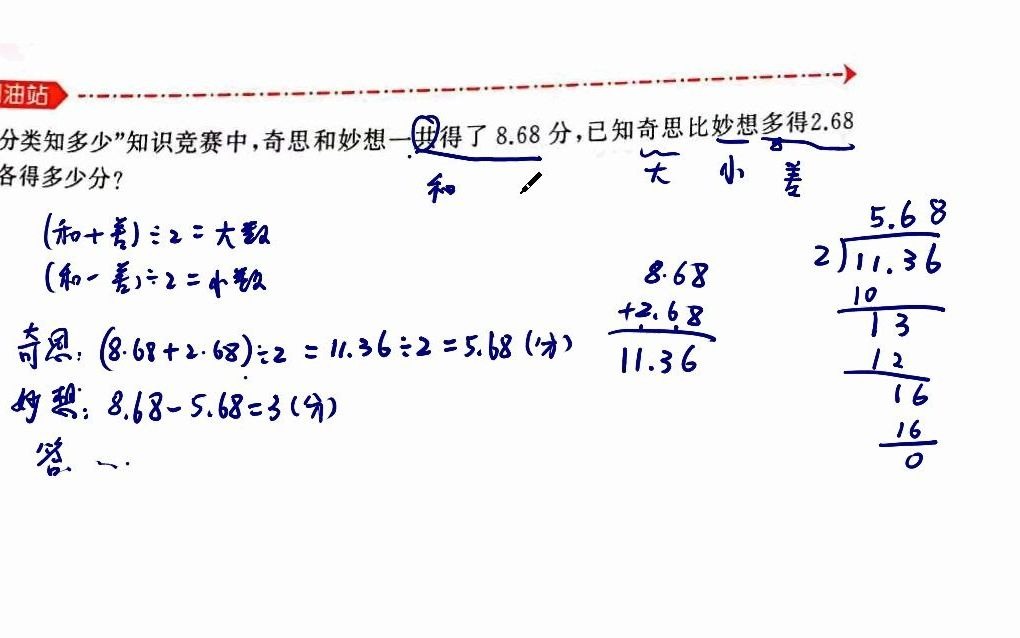 油站
分类知多少”知识竞赛中,奇思和妙想一共得了 8.68 分,已知奇思比妙想多得2.68
各得多少分?
和 大 小 差
(和+差)÷2=大数
(和-差)÷2=小数
奇思: (8.68+2.68)÷2 = 11.36÷2=5.68(分)
妙想: 8.68-5.68=3(分)
答
8.68
+2.68
11.36
5.68
2)11.36
10
13
12
16
16
0